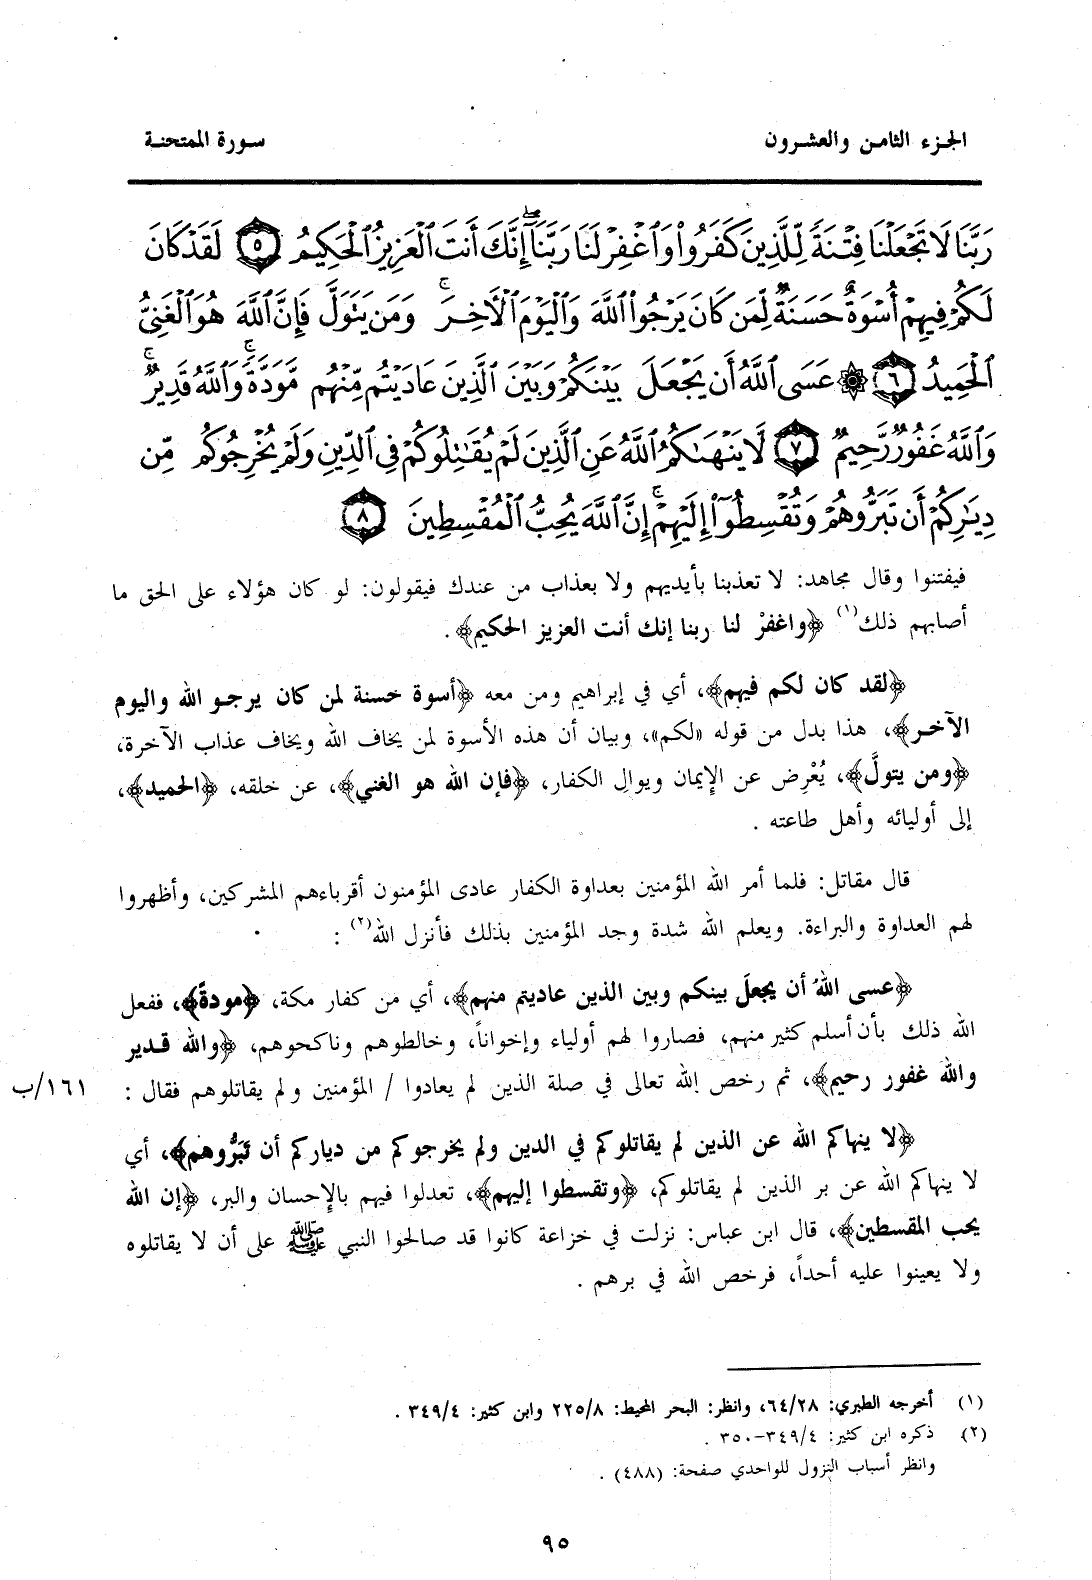 الجزء الثامن والعشرون
سورة الممتحنة
رَبَّنَا لَا تَجْعَلْنَا فِتْنَةً لِّلَّذِينَ كَفَرُوا۟ وَٱغْفِرْ لَنَا رَبَّنَآ ۖ إِنَّكَ أَنتَ ٱلْعَزِيزُ ٱلْحَكِيمُ ٥ لَقَدْ كَانَ
لَكُمْ فِيهِمْ أُسْوَةٌ حَسَنَةٌ لِّمَن كَانَ يَرْجُوا۟ ٱللَّهَ وَٱلْيَوْمَ ٱلْأَخِرَ ۚ وَمَن يَتَوَلَّ فَإِنَّ ٱللَّهَ هُوَ ٱلْغَنِىُّ
ٱلْحَمِيدُ ٦ ۞ عَسَى ٱللَّهُ أَن يَجْعَلَ بَيْنَكُمْ وَبَيْنَ ٱلَّذِينَ عَادَيْتُم مِّنْهُم مَّوَدَّةً ۚ وَٱللَّهُ قَدِيرٌ ۚ
وَٱللَّهُ غَفُورٌ رَّحِيمٌ ٧ لَّا يَنْهَىٰكُمُ ٱللَّهُ عَنِ ٱلَّذِينَ لَمْ يُقَٰتِلُوكُمْ فِى ٱلدِّينِ وَلَمْ يُخْرِجُوكُم مِّن
دِيَٰرِكُمْ أَن تَبَرُّوهُمْ وَتُقْسِطُوٓا۟ إِلَيْهِمْ ۚ إِنَّ ٱللَّهَ يُحِبُّ ٱلْمُقْسِطِينَ ٨
فيفتنوا وقال مجاهد: لا تعذبنا بأيديهم ولا بعذاب من عندك فيقولون: لو كان هؤلاء على الحق ما
أصابهم ذلك(١) ﴿واغفرْ لنا ربنا إنك أنت العزيز الحكيم﴾.
﴿لقد كان لكم فيهم﴾، أي في إبراهيم ومن معه ﴿أسوة حسنة لمن كان يرجو الله واليوم
الآخر﴾، هذا بدل من قوله «لكم»، وبيان أن هذه الأسوة لمن يخاف الله ويخاف عذاب الآخرة،
﴿ومن يتولَّ﴾، يُعْرِض عن الإيمان ويوالِ الكفار، ﴿فإن الله هو الغني﴾، عن خلقه، ﴿الحميد﴾،
إلى أوليائه وأهل طاعته .
قال مقاتل: فلما أمر الله المؤمنين بعداوة الكفار عادى المؤمنون أقرباءهم المشركين، وأظهروا
لهم العداوة والبراءة. ويعلم الله شدة وجد المؤمنين بذلك فأنزل الله(٢) :
﴿عسى اللهُ أن يجعلَ بينكم وبين الذين عاديتم منهم﴾، أي من كفار مكة، ﴿مودةً﴾، ففعل
الله ذلك بأن أسلم كثير منهم، فصاروا لهم أولياء وإخواناً، وخالطوهم وناكحوهم، ﴿والله قدير
والله غفور رحيم﴾، ثم رخص الله تعالى في صلة الذين لم يعادوا / المؤمنين ولم يقاتلوهم فقال :
١٦١/ب
﴿لا ينهاكم الله عن الذين لم يقاتلوكم في الدين ولم يخرجوكم من دياركم أن تَبَرُّوهم﴾، أي
لا ينهاكم الله عن بر الذين لم يقاتلوكم، ﴿وتقسطوا إليهم﴾، تعدلوا فيهم بالإحسان والبر، ﴿إن الله
يحب المقسطين﴾، قال ابن عباس: نزلت في خزاعة كانوا قد صالحوا النبي ﷺ على أن لا يقاتلوه
ولا يعينوا عليه أحداً، فرخص الله في برهم .
(١) أخرجه الطبري: ٦٤/٢٨، وانظر: البحر المحيط: ٢٢٥/٨ وابن كثير: ٣٤٩/٤ .
(٢) ذكره ابن كثير: ٣٤٩/٤-٣٥٠ .
وانظر أسباب النزول للواحدي صفحة: (٤٨٨) .
٩٥